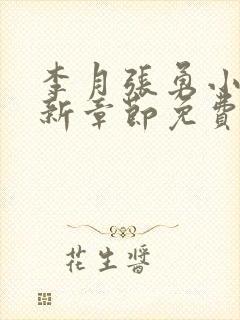 李月張勇小
新章節免費
花生醬